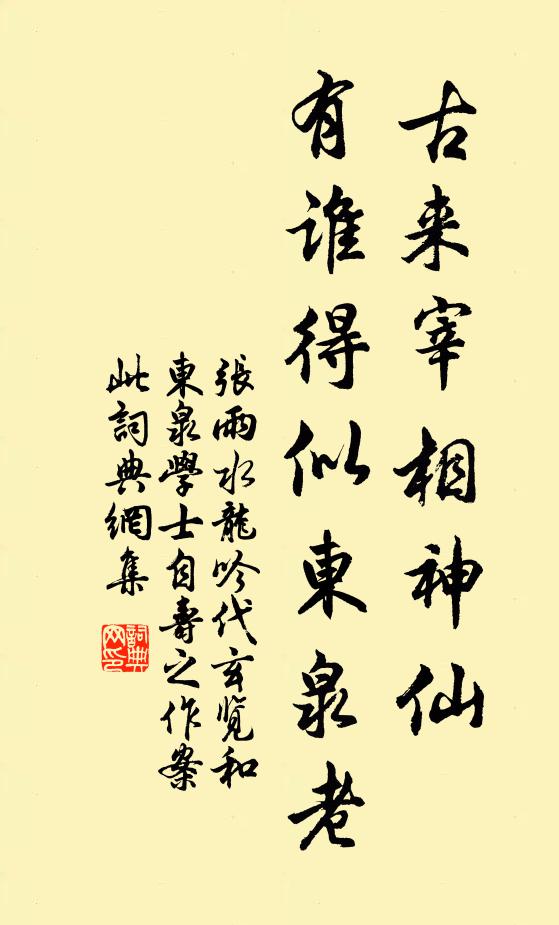 古来宰相神仙
有誰得似東泉老
張雨水龍吟代玄覽和
東泉學士自壽之作案
此詞典網集
詞典網印